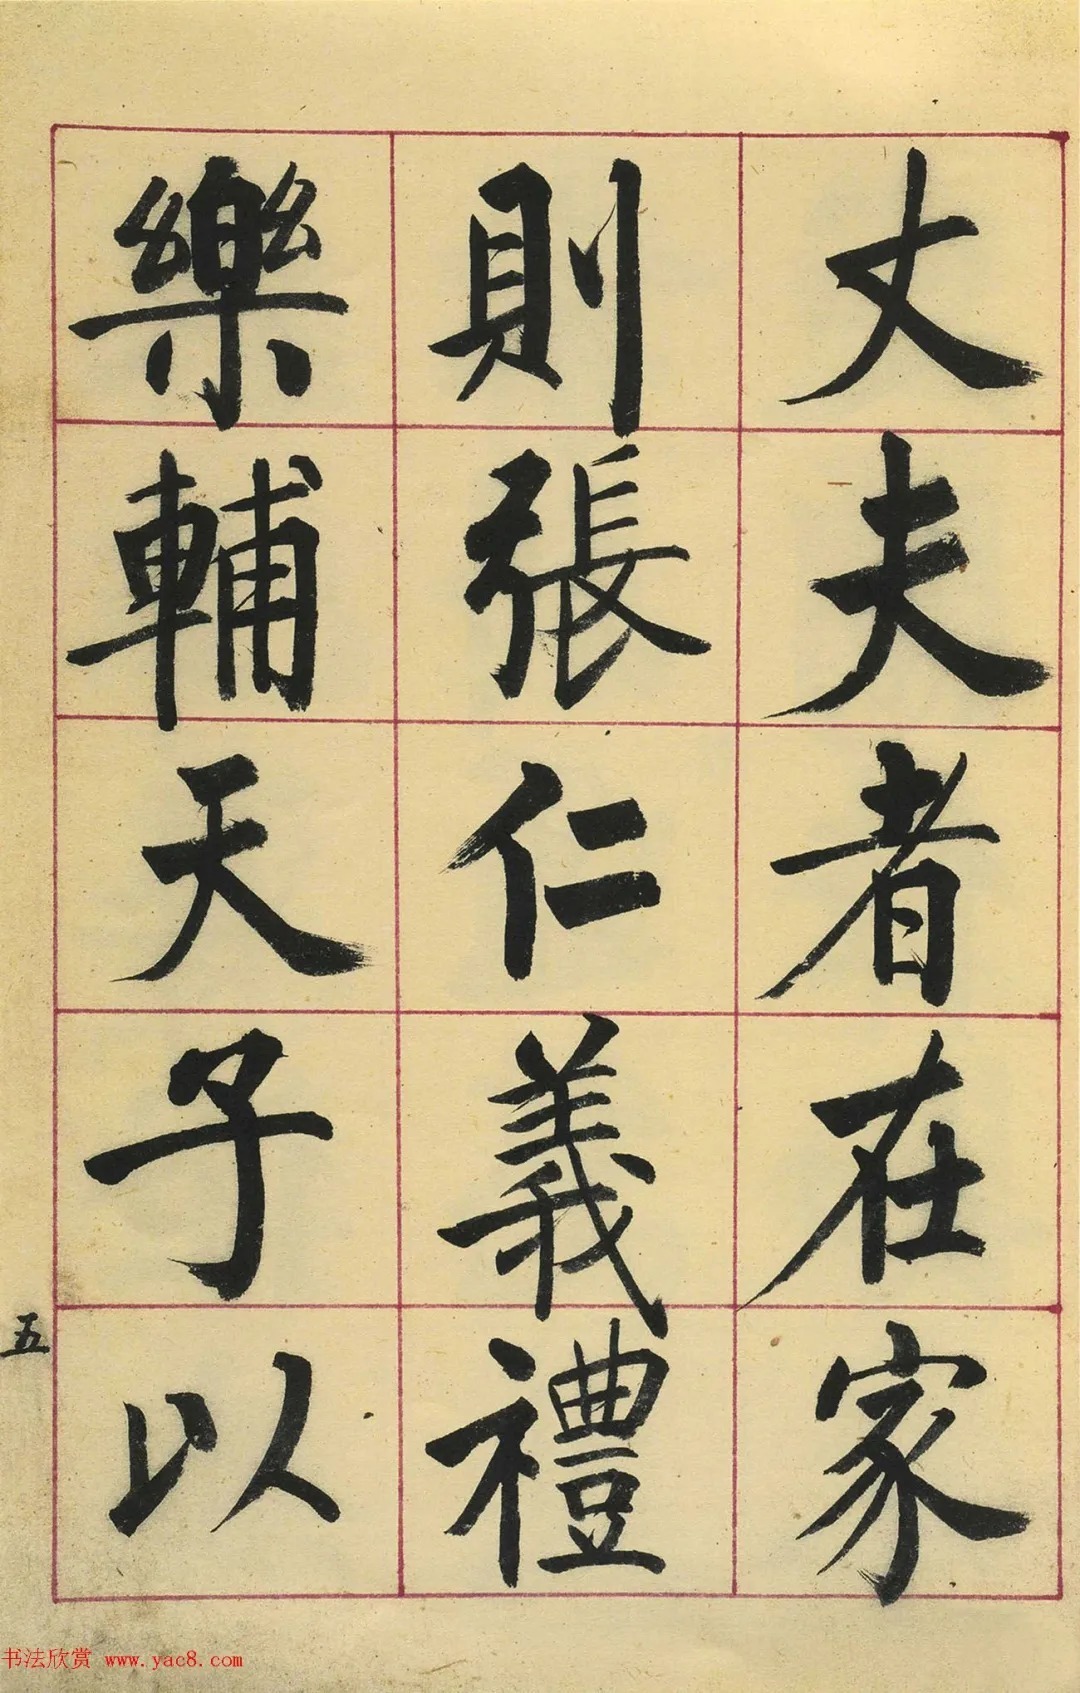 丈夫者在家
則張仁義禮
樂輔天子以
五
书法欣赏 www.yac8.com